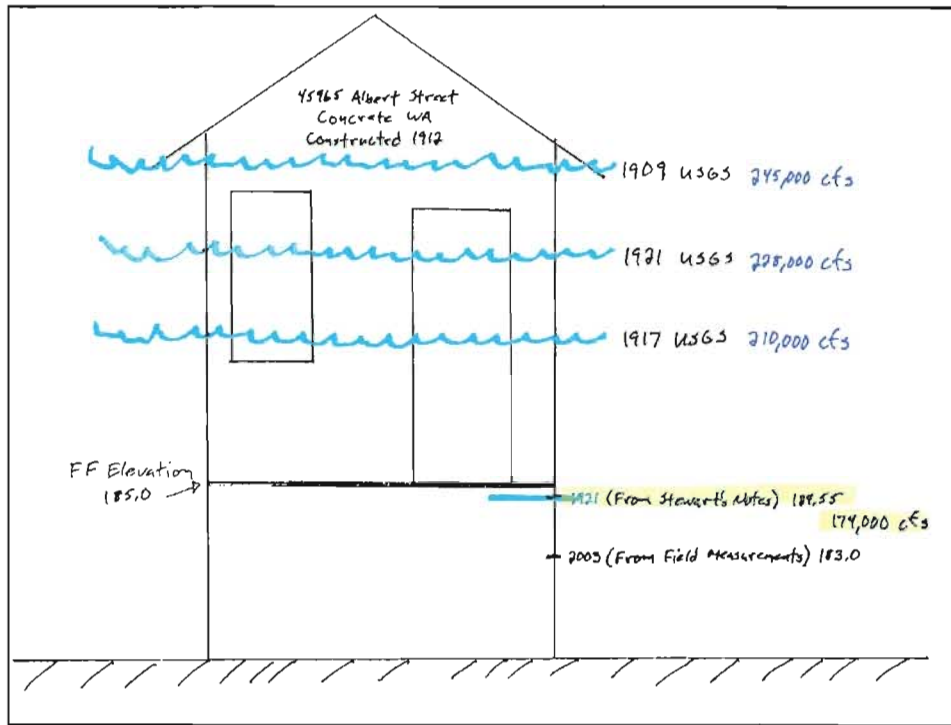 45965 Albert Street
Concrete WA
Constructed 1912
1909 USGS 245,000 cfs
1921 USGS 228,000 cfs
1917 USGS 210,000 cfs
FF Elevation
185.0
1921 (From Stewart's Notes) 184.55
174,000 cfs
2003 (From Field Measurements) 183.0